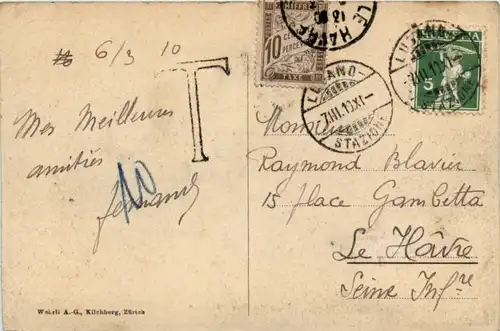 6/3 10
T
Mes Meilleures
amitiés
Fernand
10
CHIFFRE
10 CENTIMES
PERCEVOIR
TAXE
LE HAVRE
LUGANO
STAZIONE
LUGANO
5
Monsieur
Raymond Blavier
15 place Gambetta
Le Hâvre
Seine Infre
Wehrli A.-G., Kilchberg, Zürich